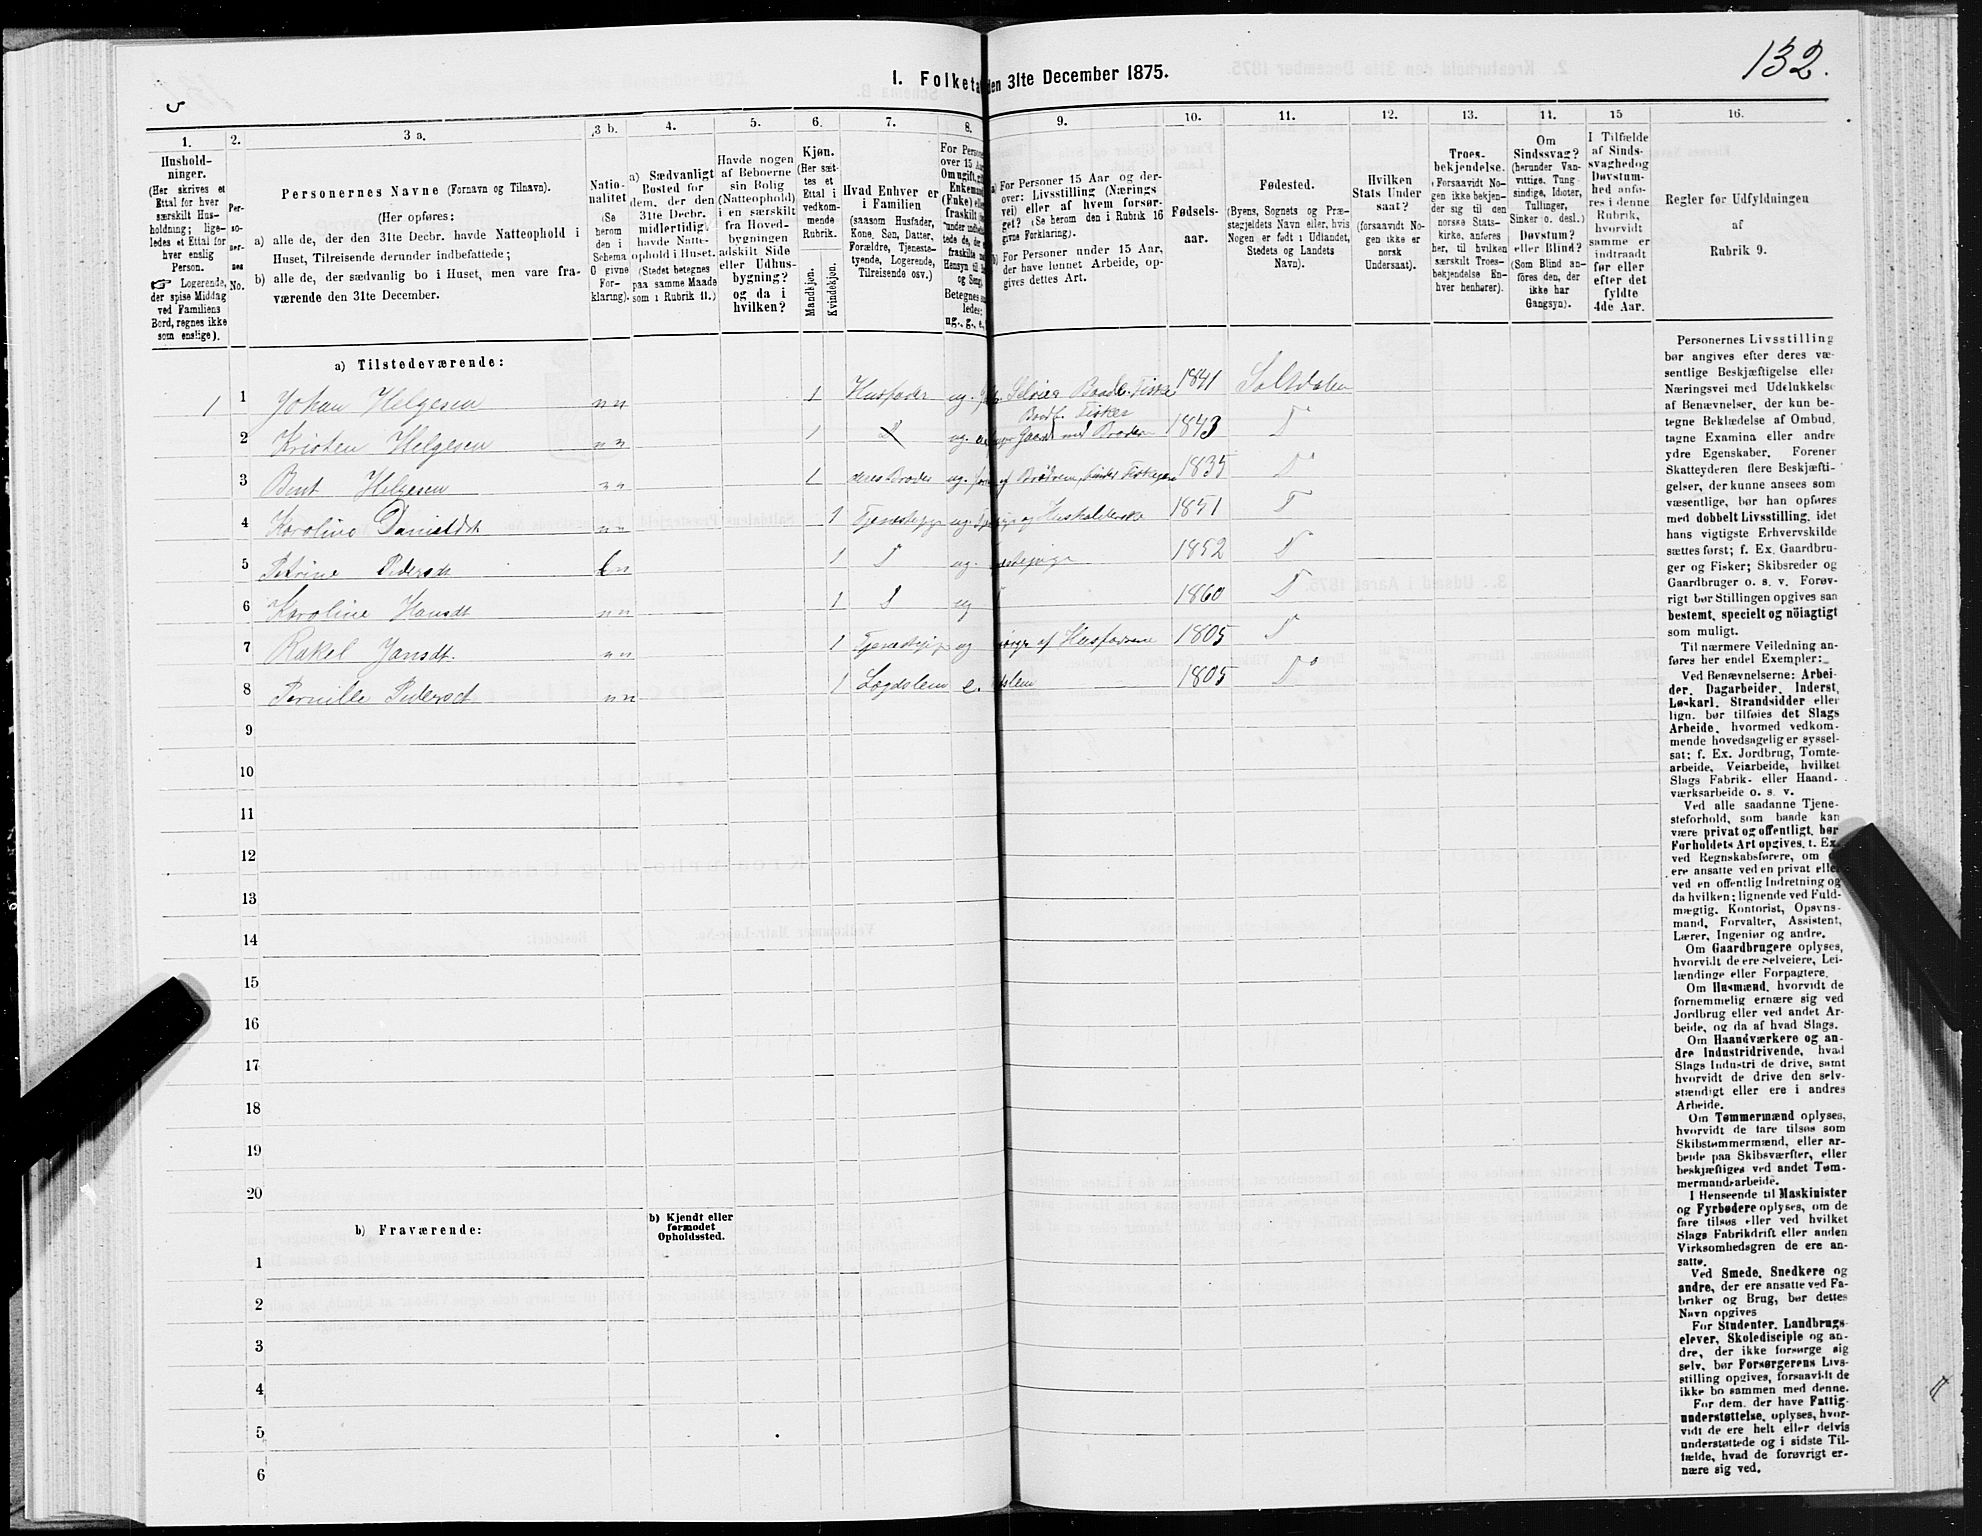 132.
I. Folketa den 31te December 1875.
1.
Hushold-
ninger.
(Her skrives et
Ettal for hver
særskilt Hus-
holdning; lige-
ledes et Ettal for
hver enslig
Person.
☞ Logerende,
der spise Middag
ved Familiens
Bord, regnes ikke
som enslige).
2.
Per-
so-
ner-
nes
No.
3 a.
Personernes Navne (Fornavn og Tilnavn).
(Her opføres:
a) alle de, der den 31te Decbr. havde Natteophold i
Huset, Tilreisende derunder indbefattede;
b) alle de, der sædvanlig bo i Huset, men vare fra-
værende den 31te December.
3 b.
Natio-
nalitet
(Se
herom
den i
Schema
G givne
For-
klaring).
4.
a) Sædvanligt
Bosted for
dem, der den
31te Decbr.
midlertidigt
havde Natte-
ophold i Huset.
(Stedet betegnes
paa samme Maade
som i Rubrik 11.)
5.
Havde nogen
af Beboerne
sin Bolig
(Natteophold)
i en særskilt
fra Hoved-
bygningen
adskilt Side
eller Udhus-
bygning?
og da i
hvilken?
6.
Kjøn.
(Her sæt-
tes et
Ettal i
vedkom-
mende
Rubrik.
Mandkjøn.
Kvindekjøn.
7.
Hvad Enhver er
i Familien
(saasom Husfader,
Kone, Søn, Datter,
Forældre, Tjeneste-
tyende, Logerende,
Tilreisende osv.)
8.
For Persone
over 15 Aa
Om ugift, gi
Enkemand
(Enke) elle
fraskilt
Betegnes
ledes:
ug., g., e.,
9.
a) For Personer 15 Aar og der-
over: Livsstilling (Nærings
vei) eller af hvem forsør-
get? (Se herom den i Rubrik 16
givne Forklaring).
b) For Personer under 15 Aar,
der have lønnet Arbeide, op-
gives dettes Art.
10.
Fødsels-
aar.
11.
Fødested.
(Byens, Sognets og Præ-
stegjeldets Navn eller, hvis
Nogen er født i Udlandet,
Stedets og Landets
Navn).
12.
Hvilken
Stats Under
saat?
(forsaavidt No-
gen ikke er
norsk
Undersaat).
13.
Troes-
bekjendelse.
(Forsaavidt No-
gen ikke bekjen-
der sig til den
norske Stats-
kirke, anføres
her, til hvilken
særskilt Troes-
bekjendelse En-
hver henhører).
14.
Om
Sindssvag?
(herunder Van-
vittige, Tung-
sindige, Idioter,
Tullinger,
Sinker o. desl.)
Døvstum?
eller Blind?
(Som Blind an-
føres den, der
ikke har
Gangsyn).
15
I Tilfælde
af Sinds-
svaghed og
Døvstum-
hed anfø-
res i denne
Rubrik,
hvorvidt
samme er
indtraadt
før eller
efter det
fyldte
4de Aar.
16.
Regler for Udfyldningen
af
Rubrik 9.
a) Tilstedeværende:
1 1 Johan Helgesen nn 1 Husfader ug. Selveier Fisker 1841 Saltdalen
2 Kristen Helgesen nn 1 ug. Fisker Gaard med Broder 1843 D
3 Bent Helgesen nn 1 deres Broder ug. af Brødrene 1835 D
4 Karoline Danielsdt nn 1 ug. og Husholderske 1851 D
5 Petrine Pedersdt 1 D ug. 1852 D
6 Karoline Hansdt nn 1 D ug 1860 D
7 Rakel Jansdt. nn 1 ug af Husfaderne 1805 D
8 Pernille Pedersdt nn 1 Lægdslem e. 1805 D
9
10
11
12
13
14
15
16
17
18
19
20
b) Fraværende:
b) Kjendt eller
formodet
Opholdssted.
1
2
3
4
5
6
Personernes Livsstilling
bør angives efter deres væ-
sentlige Beskjæftigelse eller
Næringsvei med Udelukkelse
af Benævnelser, der kun be-
tegne Beklædelse af Ombud,
tagne Examina eller andre
ydre Egenskaber. Forener
Skatteyderen flere Beskjæfti-
gelser, der kunne ansees som
væsentlige, bør han opføres
med dobbelt Livsstilling, idet
hans vigtigste Erhvervskilde
sættes først; f. Ex. Gaardbru-
ger og Fisker; Skibsreder og
Gaardbruger o. s. v. Forøv-
rigt bør Stillingen opgives saa
bestemt, specielt og nöiagtigt
som muligt.
Til nærmere Veiledning an-
føres her endel Exempler:
Ved Benævnelserne: Arbei-
der, Dagarbeider, Inderst,
Løskarl, Strandsidder eller
lign. bør tilføies det Slags
Arbeide, hvormed vedkom-
mende hovedsagelig er syssel-
sat; f. Ex. Jordbrug, Tomte-
arbeide, Veiarbeide, hvilket
Slags Fabrik- eller Haand-
værksarbeide o. s. v.
Ved alle saadanne Tjene-
steforhold, som baade kan
være privat og offentligt, bør
Forholdets Art opgives, t. Ex.
ved Regnskabsførere, om
ere ansatte ved en privat elle
ved en offentlig Indretning og
da hvilken; lignende ved Fuld-
mægtig, Kontorist, Opsyns-
mand, Forvalter, Assistent,
Lærer, Ingeniør og andre.
Om Gaardbrugere oplyses,
hvorvidt de ere Selveiere, Lei-
lændinge eller Forpagtere.
Om Husmænd, hvorvidt de
fornemmelig ernære sig ved
Jordbrug eller ved andet Ar-
beide, og da af hvad Slags.
Om Haandværkere og an-
dre Industridrivende, hvad
Slags Industri de drive, samt
hvorvidt de drive den selv-
stændigt eller ere i andres
Arbeide.
Om Tømmermænd oplyses,
hvorvidt de fare tilsøs som
Skibstømmermænd, eller ar-
beide paa Skibsværfter, eller
beskjæftiges ved andet Tøm-
mermandsarbeide.
I Henseende til Maskinister
og Fyrbødere oplyses, om de
fare tilsøs eller ved hvilket
Slags Fabrikdrift eller anden
Virksomhedsgren de ere an-
satte.
Ved Smede, Snedkere og
andre, der ere ansatte ved Fa-
briker og Brug, bør dettes
Navn opgives
For Studenter, Landbrugs-
elever, Skoledisciple og an-
dre, der ikke forsørge sig
selv, bør Forsørgerens Livs-
stilling opgives, forsaavidt de
ikke bo sammen med denne.
For dem, der have Fattig-
understøttelse, oplyses, hvor-
vidt de ere helt eller delvis
understøttede og i sidste Til-
fælde, hvad de forøvrigt er-
nære sig ved.